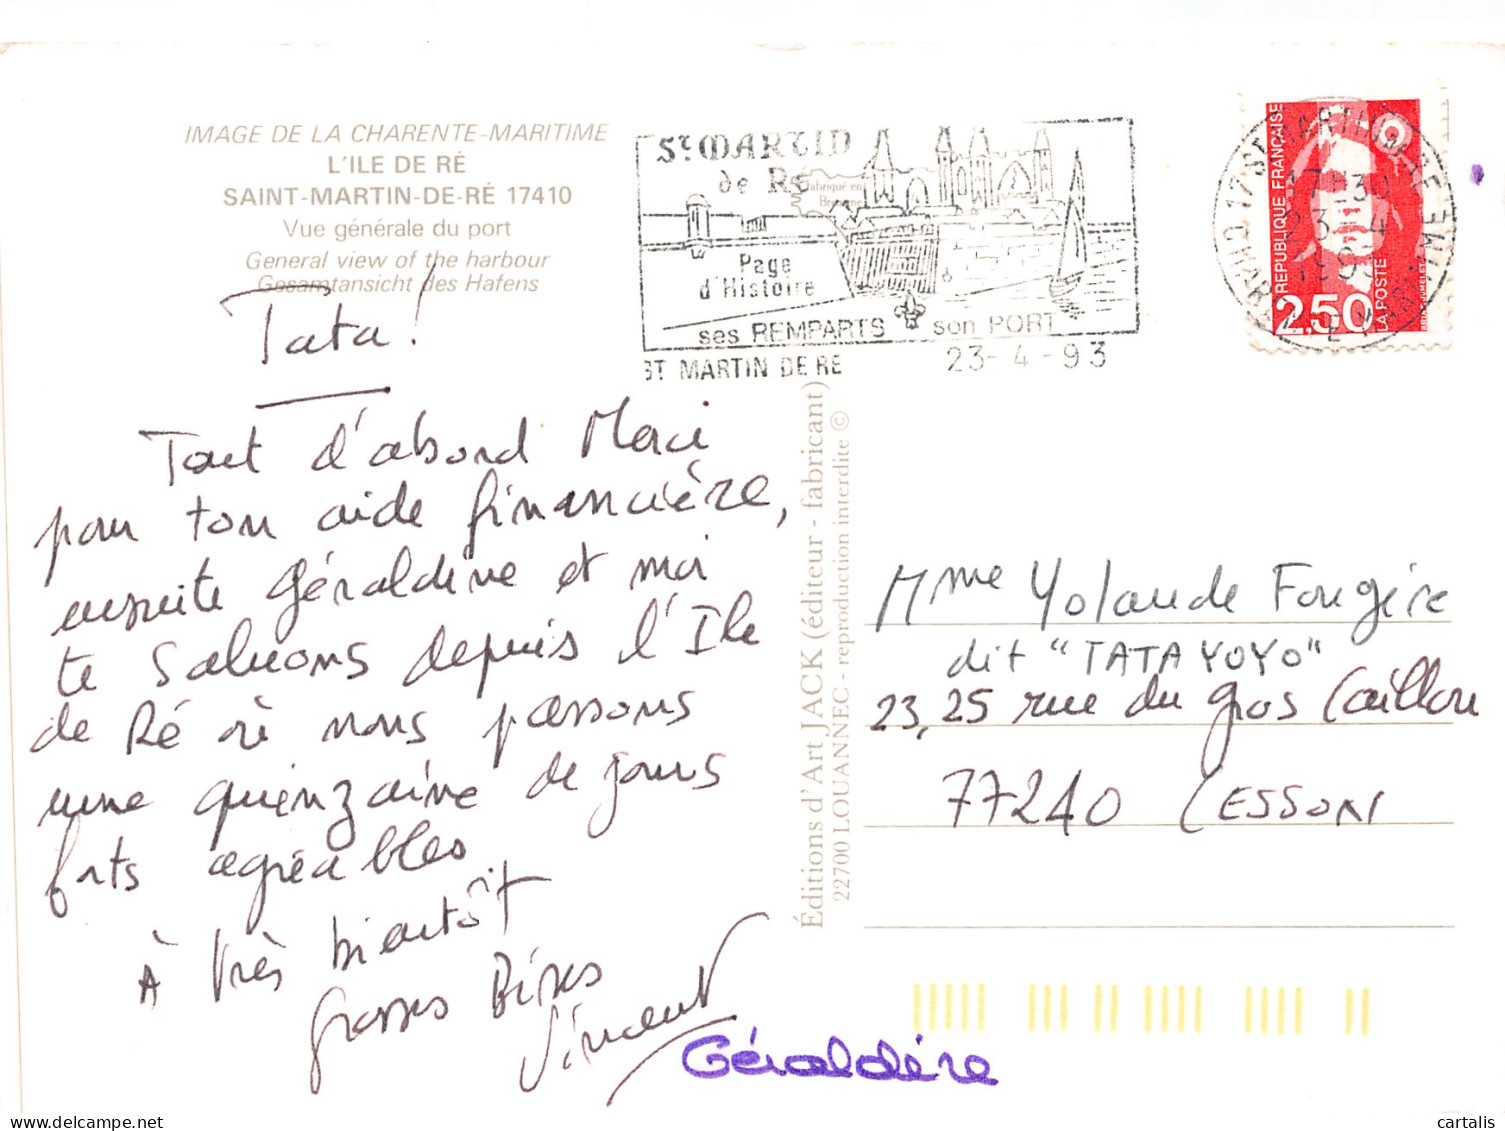 IMAGE DE LA CHARENTE-MARITIME
L'ILE DE RÉ
SAINT-MARTIN-DE-RÉ 17410
Vue générale du port
General view of the harbour
Gesamtansicht des Hafens
St MARTIN
de Ré
Fabriqué en
Page
d'Histoire
ses REMPARTS son PORT
ST MARTIN DE RE 23-4-93
RÉPUBLIQUE FRANÇAISE
2,50
LA POSTE
17-30
23-4
Tata!
Tout d'abord Merci
pour ton aide financière,
ensuite Géraldine et moi
te saluons depuis l'Ile
de Ré où nous passons
une quinzaine de jours
forts agréables
À très bientôt
Grosses Bises
Vincent
Géraldine
Éditions d'Art JACK (éditeur - fabricant)
22700 LOUANNEC - reproduction interdite ©
Mme Yolande Fougère
dit "TATA YOYO"
23, 25 rue du gros Caillou
77240 CESSON
www.delcampe.net
cartalis